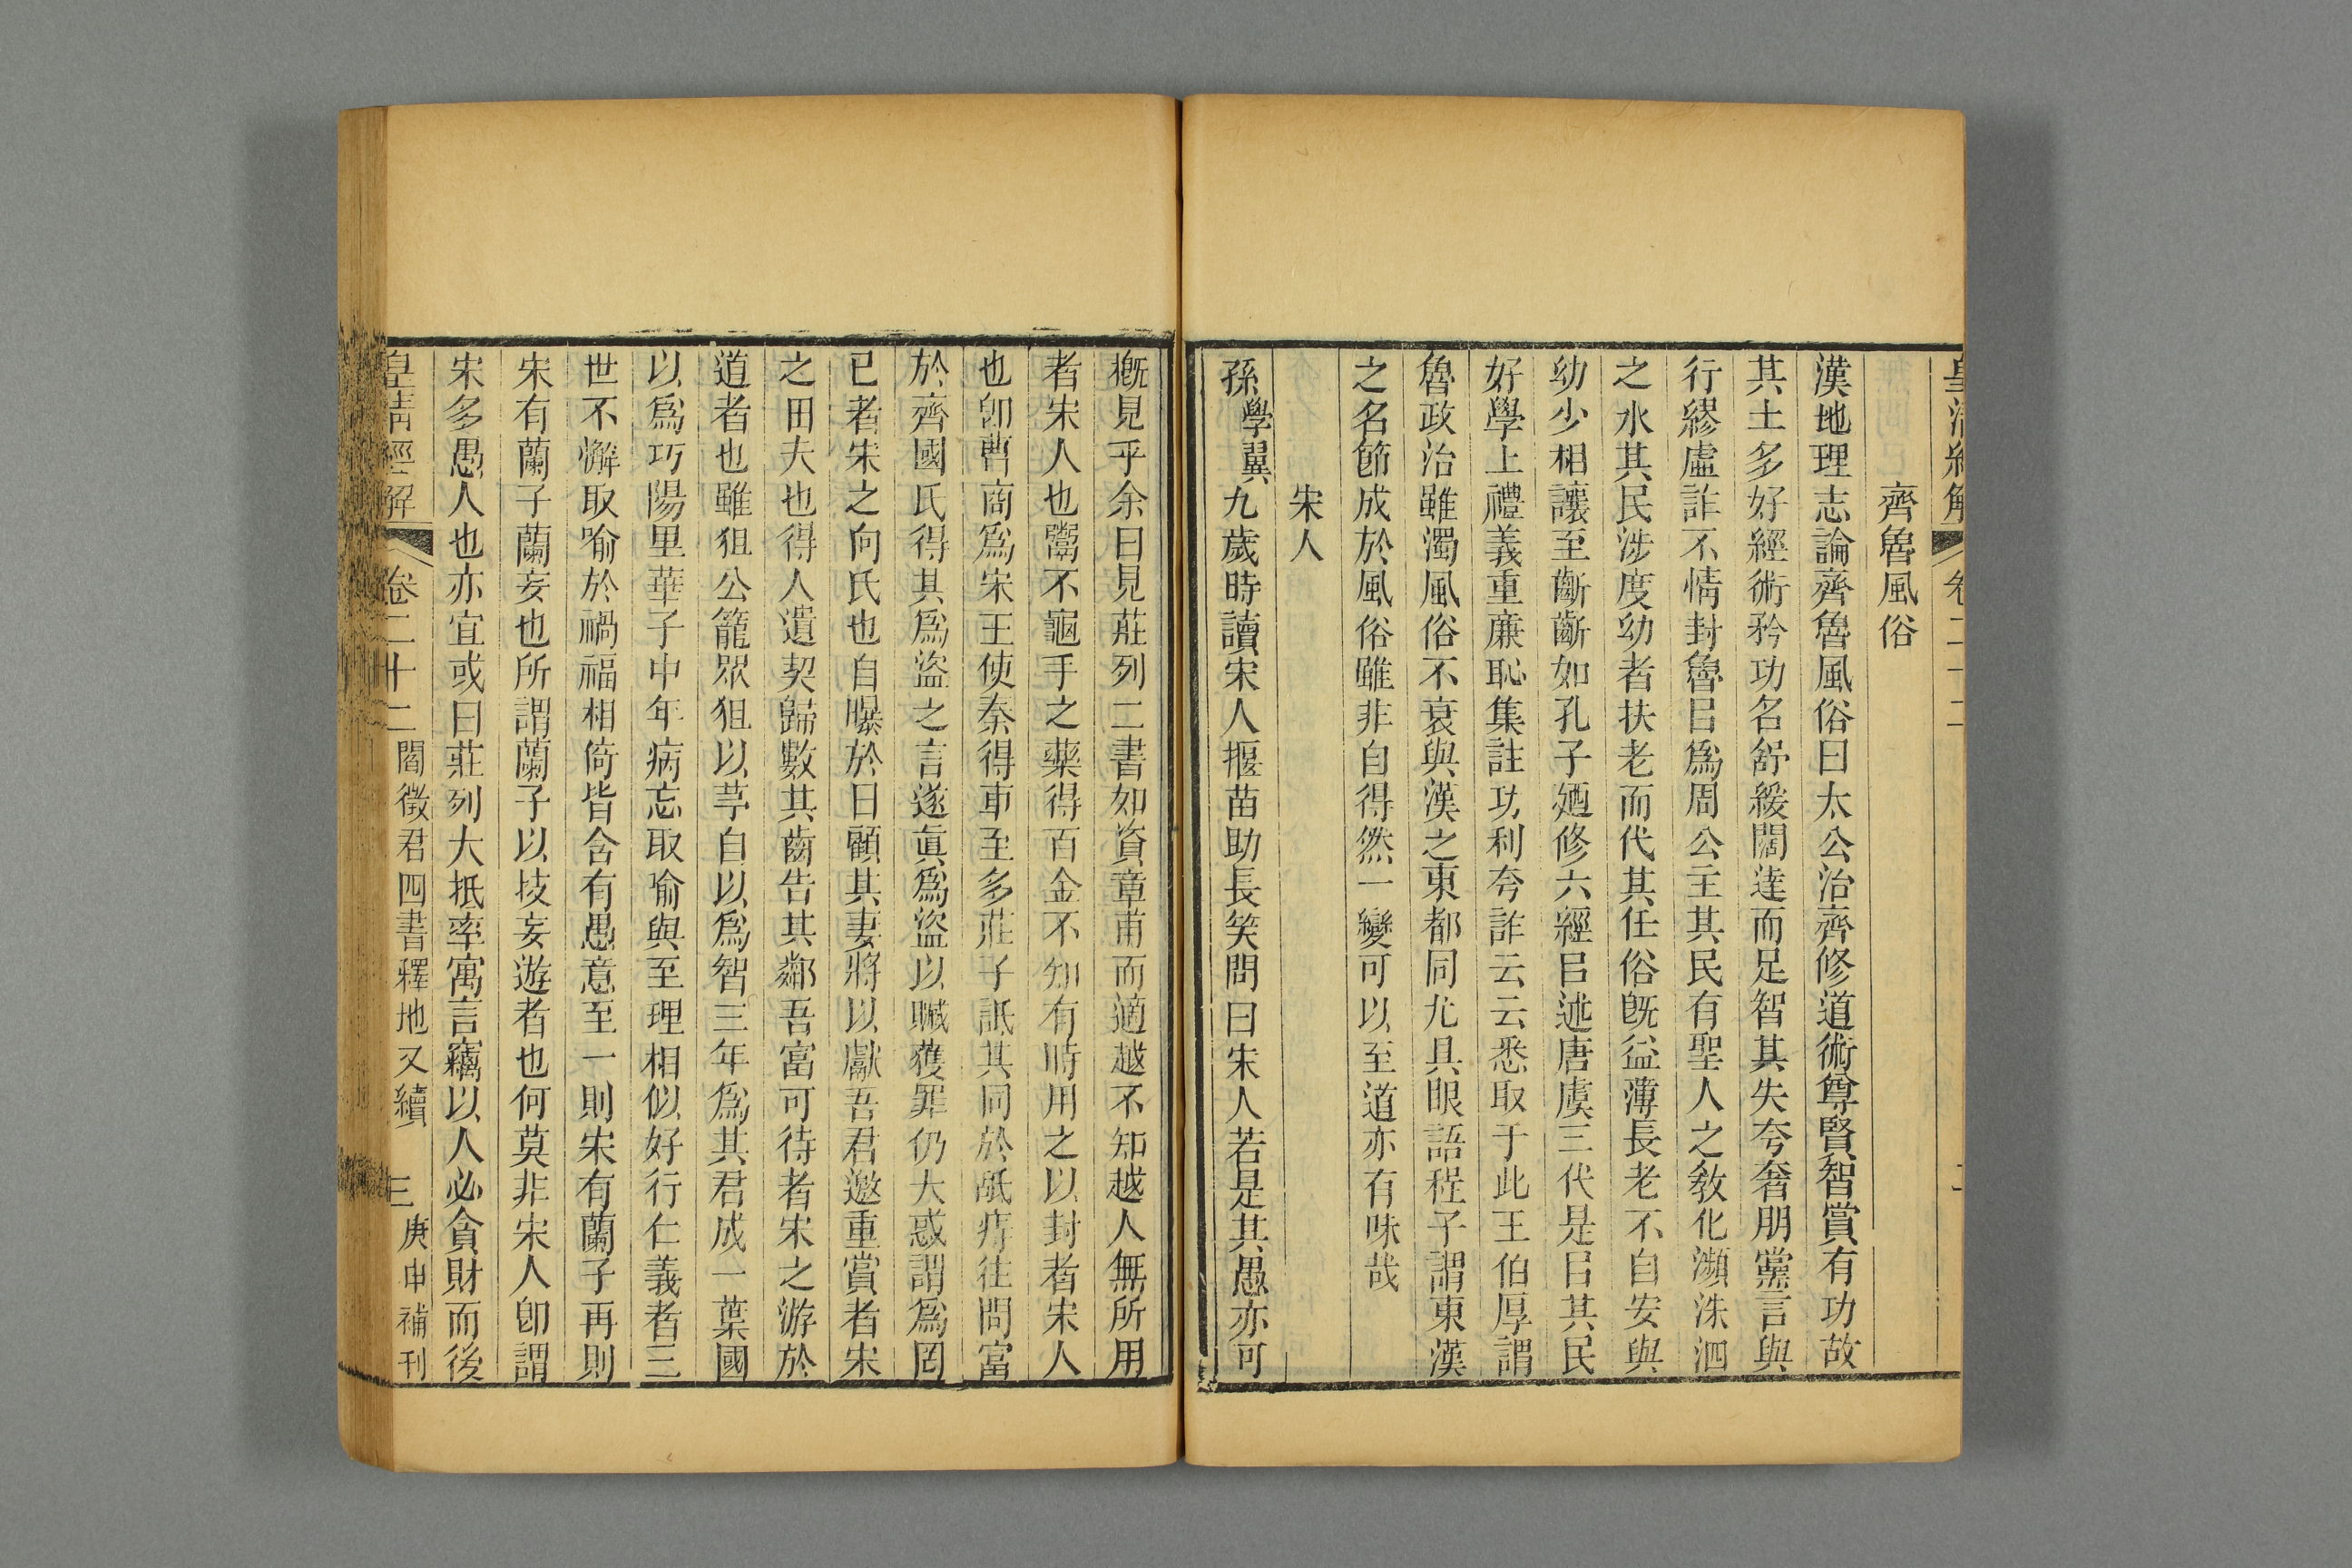 齊魯風俗
漢地理志論齊魯風俗曰太公治齊修道術尊賢智賞有功故
其土多好經術矜功名舒緩闊達而足智其失夸奢朋黨言與
行繆虛詐不情封魯㠯爲周公主其民有聖人之敎化瀕洙泗
之水其民涉度幼者扶老而代其任俗旣益薄長老不自安與
幼少相讓至齗齗如孔子廼修六經㠯述唐虞三代是㠯其民
好學上禮義重廉恥集註功利夸詐云云悉取于此王伯厚謂
魯政治雖濁風俗不衰與漢之東都同尤具眼語程子謂東漢
之名節成於風俗雖非自得然一變可以至道亦有味哉
宋人
孫學翼九歲時讀宋人揠苗助長笑問曰宋人若是其愚亦可
槪見乎余曰見莊列二書如資章甫而適越不知越人無所用
者宋人也鬻不龜手之藥得百金不知有時用之以封者宋人
也卽曹商爲宋王使秦得車至多莊子詆其同於舐痔往問富
於齊國氏得其爲盜之言遂眞爲盜以贓獲罪仍大惑謂爲罔
已者宋之向氏也自曝於日顧其妻將以獻吾君邀重賞者宋
之田夫也得人遺契歸數其齒告其鄰吾富可待者宋之游於
道者也雖狙公籠眾狙以芧自以爲智三年爲其君成一葉國
以爲巧陽里華子中年病忘取喻與至理相似好行仁義者三
世不懈取喻於禍福相倚皆含有愚意至一則宋有蘭子再則
宋有蘭子蘭妄也所謂蘭子以技妄遊者也何莫非宋人卽謂
宋多愚人也亦宜或曰莊列大抵率寓言竊以人必貪財而後
皇淸經解 卷二十二 閻徵君四書釋地又續 三 庚申補刊